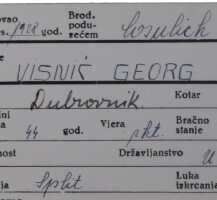 ovao Brod.
s. 1928 god. podu- Cosulich
zećem
e
VISNIĆ GEORG
Dubrovnik. Kotar
ni
a 44 god. Vjera rkt. Bračno
stanje
nost Državljanstvo
ja Split Luka
izkrcanja